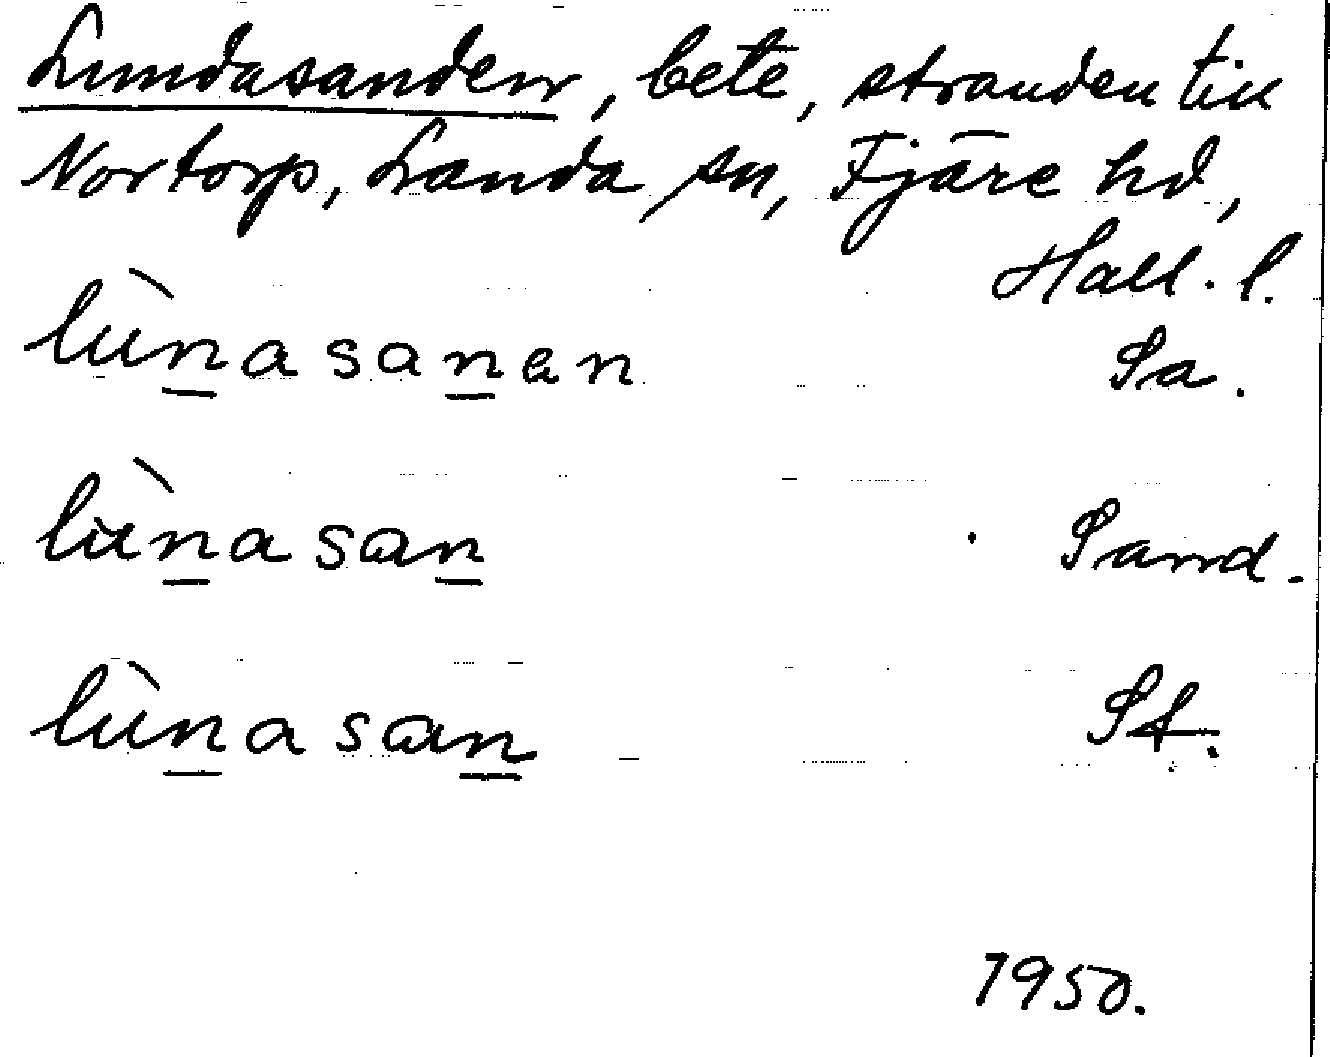 Lundasanden, bete, stranden till
Nortorp, Landa sn, Fjäre hd,
Hall. l.
lùn̲asan̲en Sa.
lùn̲asan̲ Sand.
lùn̲asan̲ St.
1950.